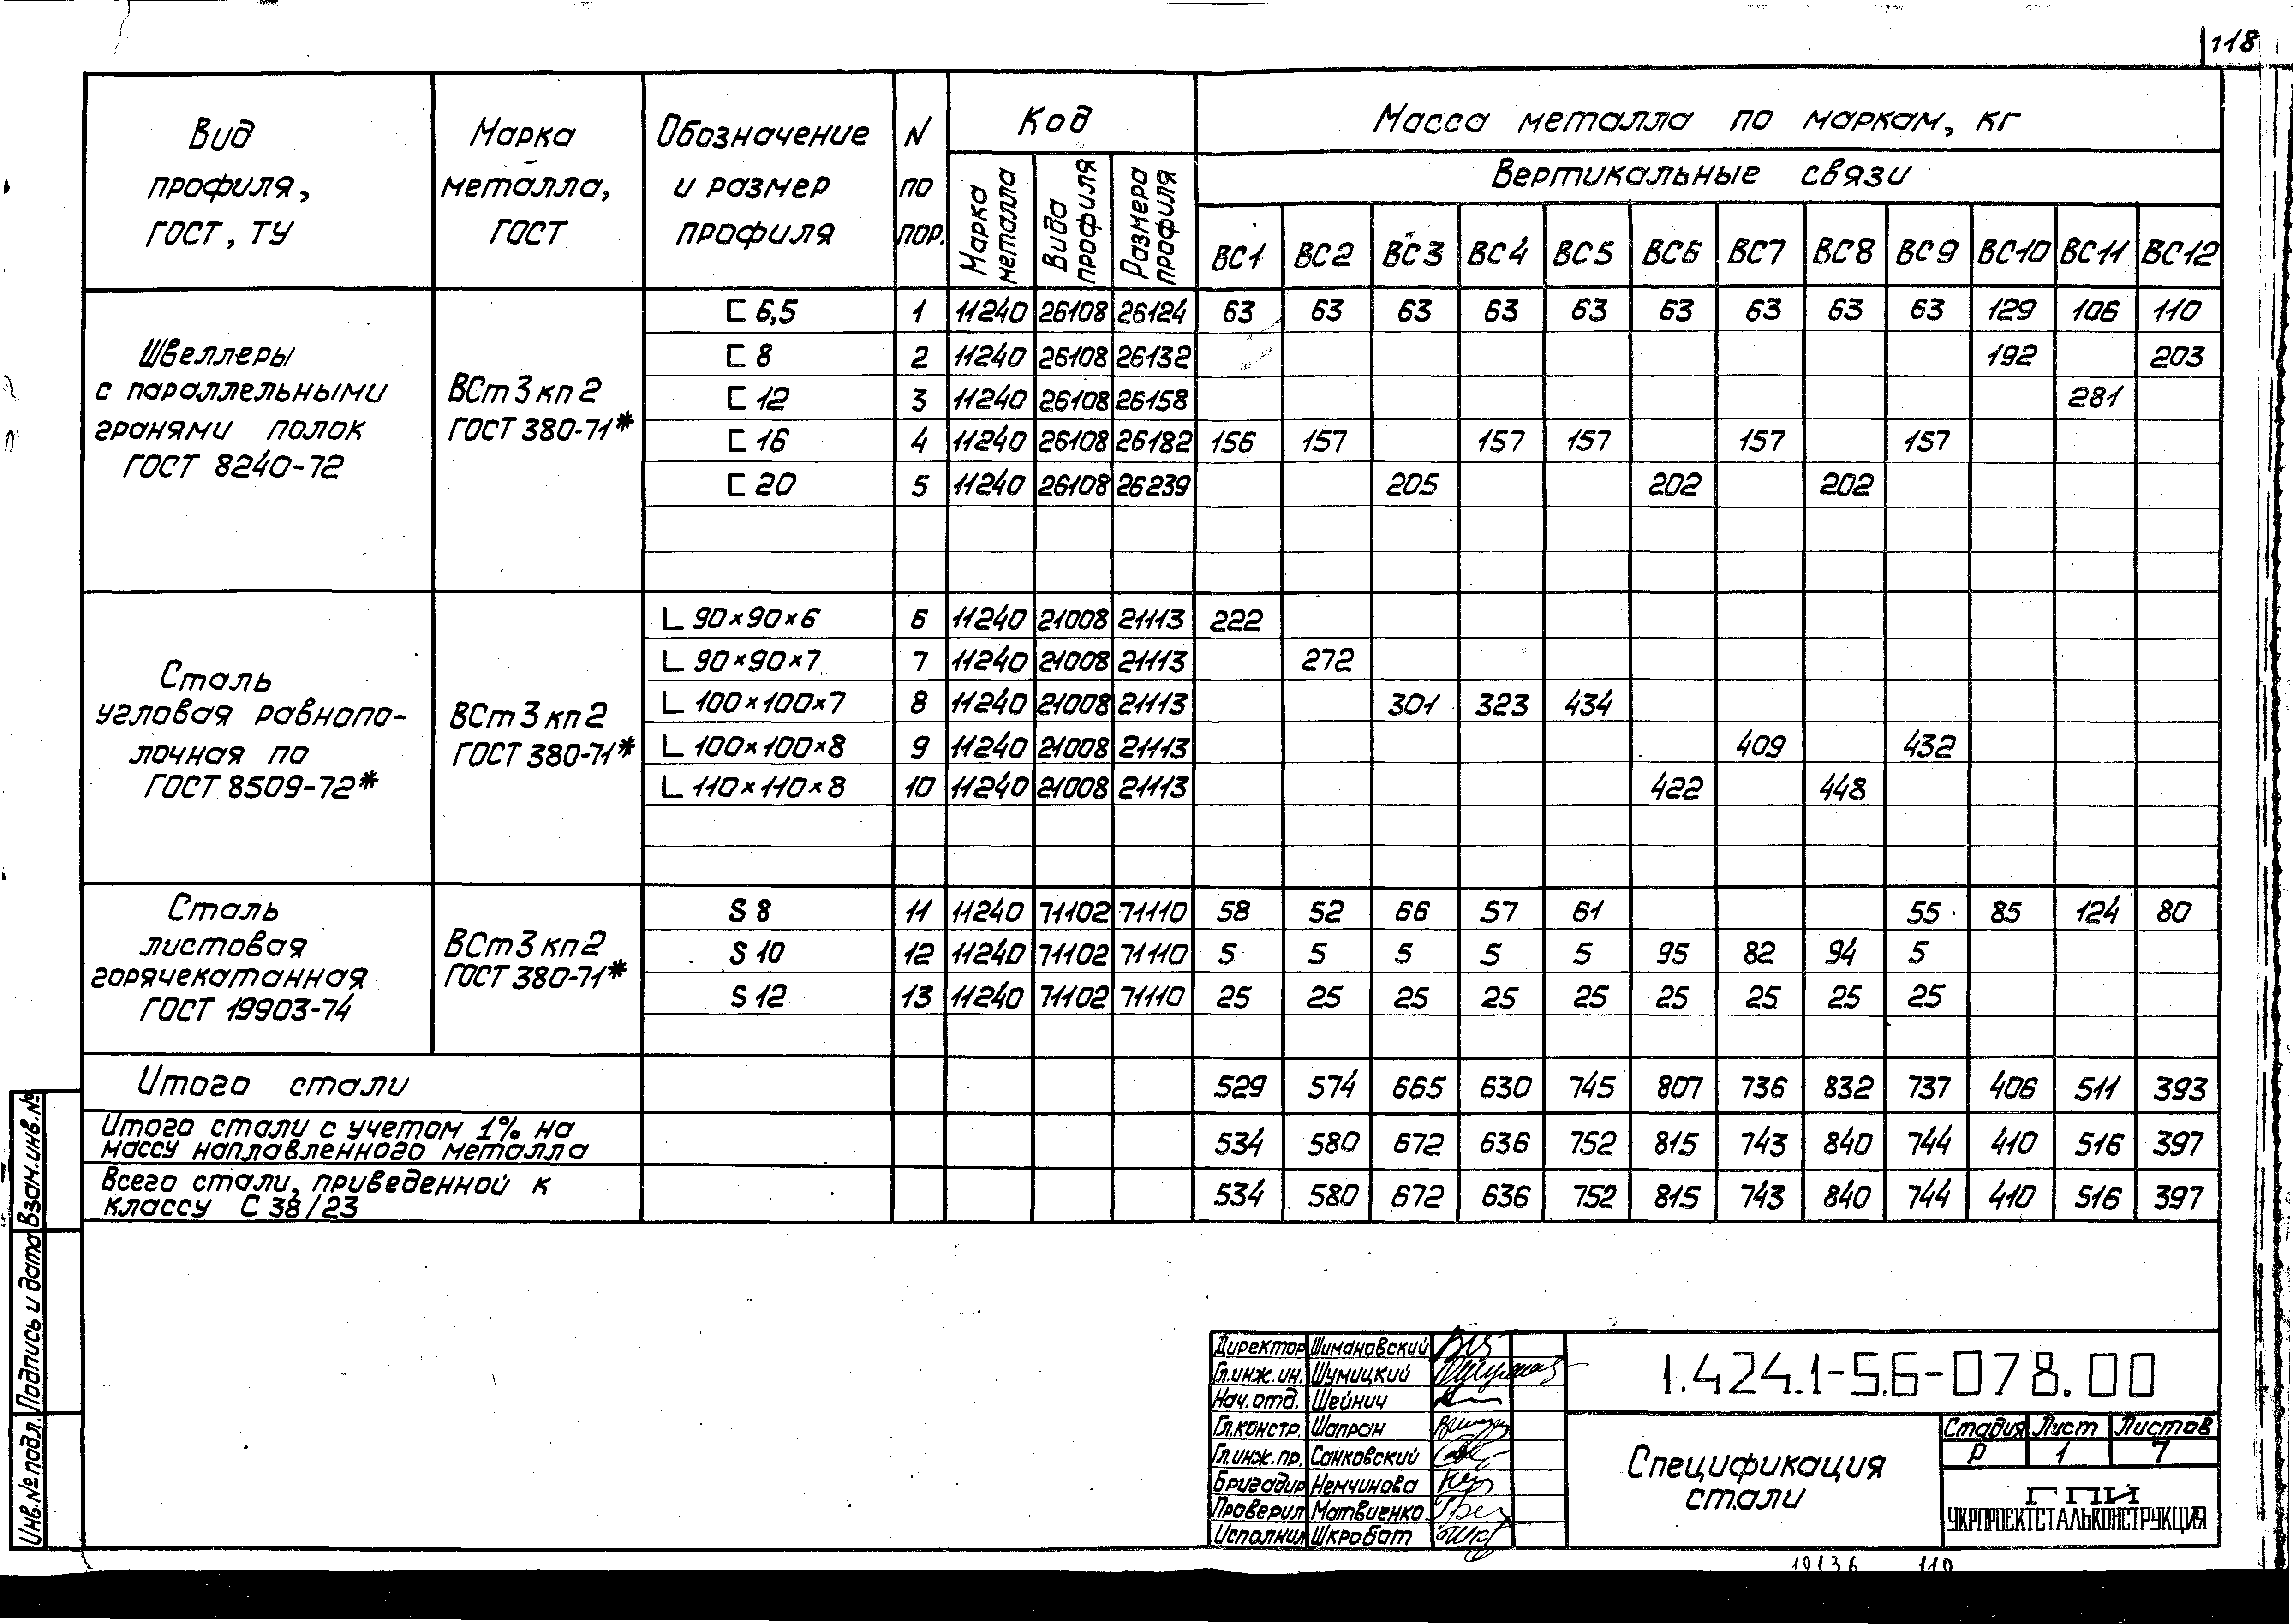 118
Вид профиля, ГОСТ, ТУ
Марка металла, ГОСТ
Обозначение и размер профиля
N по пор.
Код
Марка металла
Вида профиля
Размера профиля
Масса металла по маркам, кг
Вертикальные связи
ВС1 ВС2 ВС3 ВС4 ВС5 ВС6 ВС7 ВС8 ВС9 ВС10 ВС11 ВС12
Швеллеры
с параллельными
гранями полок
ГОСТ 8240-72
ВСт3кп2
ГОСТ 380-71*
[ 6,5 1 11240 26108 26124 63 63 63 63 63 63 63 63 63 129 106 110
[ 8 2 11240 26108 26132 192 203
[ 12 3 11240 26108 26158 281
[ 16 4 11240 26108 26182 156 157 157 157 157 157
[ 20 5 11240 26108 26239 205 202 202
Сталь
угловая равнопо-
лочная по
ГОСТ 8509-72*
ВСт3кп2
ГОСТ 380-71*
L 90×90×6 6 11240 21008 21113 222
L 90×90×7 7 11240 21008 21113 272
L 100×100×7 8 11240 21008 21113 301 323 434
L 100×100×8 9 11240 21008 21113 409 432
L 110×110×8 10 11240 21008 21113 422 448
Сталь
листовая
горячекатанная
ГОСТ 19903-74
ВСт3кп2
ГОСТ 380-71*
S 8 11 11240 71102 71110 58 52 66 57 61 55 85 124 80
S 10 12 11240 71102 71110 5 5 5 5 5 95 82 94 5
S 12 13 11240 71102 71110 25 25 25 25 25 25 25 25 25
Итого стали 529 574 665 630 745 807 736 832 737 406 511 393
Итого стали с учетом 1% на
массу наплавленного металла 534 580 672 636 752 815 743 840 744 410 516 397
Всего стали, приведенной к
классу С 38/23 534 580 672 636 752 815 743 840 744 410 516 397
Инв.№ подл. Подпись и дата Взам.инв.№
Директор Шимановский
Гл.инж.ин. Шумицкий
Нач.отд. Шейнич
Гл.констр. Шапран
Гл.инж.пр. Санковский
Бригадир Немчинова
Проверил Матвиенко
Исполнил Шкробат
1.424.1-5.6-078.00
Спецификация
стали
Стадия Лист Листов
Р 1 7
ГПИ
УКРПРОЕКТСТАЛЬКОНСТРУКЦИЯ
19136 119